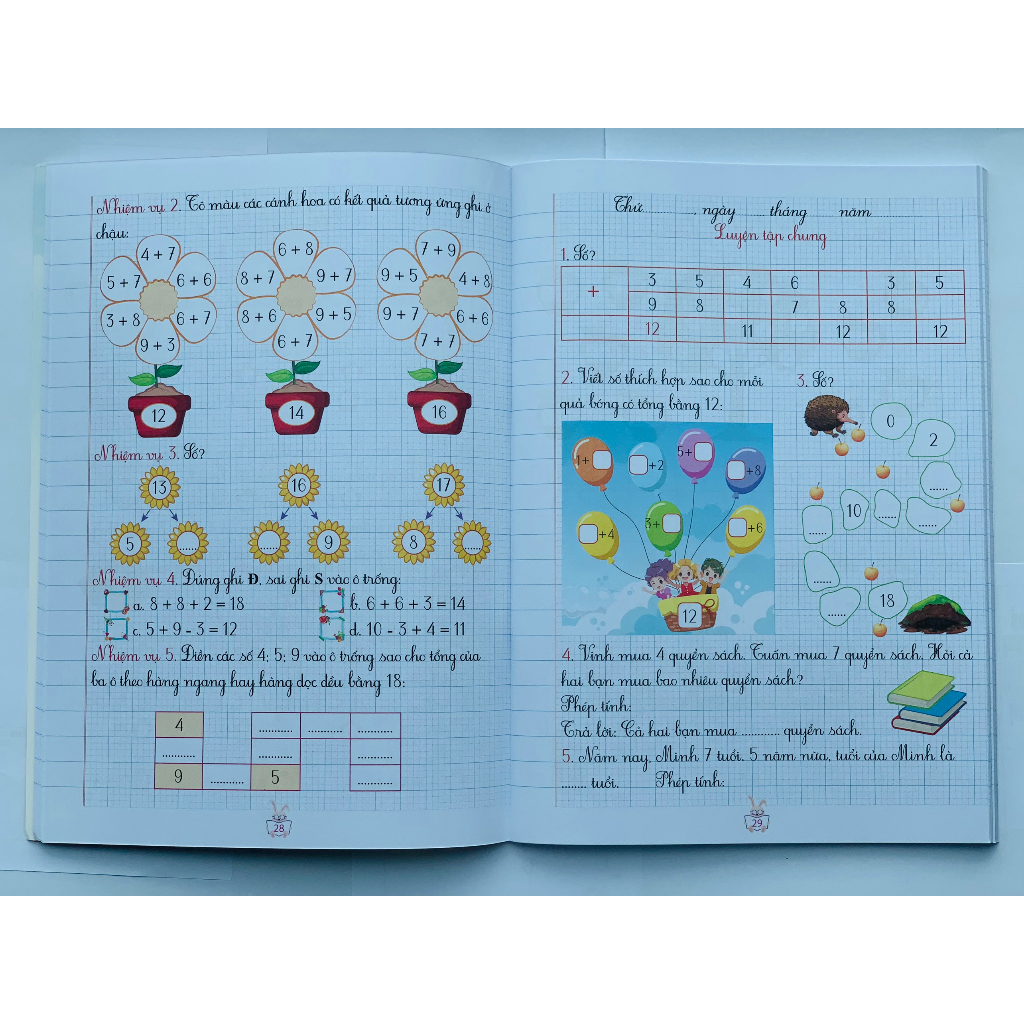 Nhiệm vụ 2. Tô màu các cánh hoa có kết quả tương ứng ghi ở
chậu:
4 + 7
5 + 7
6 + 6
3 + 8
6 + 7
9 + 3
12
6 + 8
8 + 7
9 + 7
8 + 6
9 + 5
6 + 7
14
7 + 9
9 + 5
4 + 8
9 + 7
6 + 6
7 + 7
16
Nhiệm vụ 3. Số?
13
5 ......
16
...... 9
17
8 ......
Nhiệm vụ 4. Đúng ghi Đ, sai ghi S vào ô trống:
a. 8 + 8 + 2 = 18
b. 6 + 6 + 3 = 14
c. 5 + 9 - 3 = 12
d. 10 - 3 + 4 = 11
Nhiệm vụ 5. Điền các số 4; 5; 9 vào ô trống sao cho tổng của
ba ô theo hàng ngang hay hàng dọc đều bằng 18:
4 ........... ........... ...........
........... ...........
9 ........... 5 ...........
28
Thứ ............., ngày ...... tháng năm
Luyện tập chung
1. Số?
+ 3 5 4 6 3 5
9 8 7 8 8
12 11 12 12
2. Viết số thích hợp sao cho mỗi
quả bóng có tổng bằng 12:
4+
+2
5+
+8
+4
3+
+6
12
3. Số?
0
2
......
......
......
10
......
......
......
18
4. Vinh mua 4 quyển sách. Tuấn mua 7 quyển sách. Hỏi cả
hai bạn mua bao nhiêu quyển sách?
Phép tính:
Trả lời: Cả hai bạn mua ............ quyển sách.
5. Năm nay, Minh 7 tuổi. 5 năm nữa, tuổi của Minh là
........ tuổi. Phép tính:
29